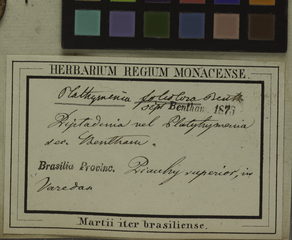 HERBARIUM REGIUM MONACENSE.
Plathymenia foliolosa Benth
sec. Bentham 1873
Piptadenia vel Platyhymenia
sec. Bentham.
Brasilia Provinc. Piauhy superior, in
Varedas
Martii iter brasiliense.